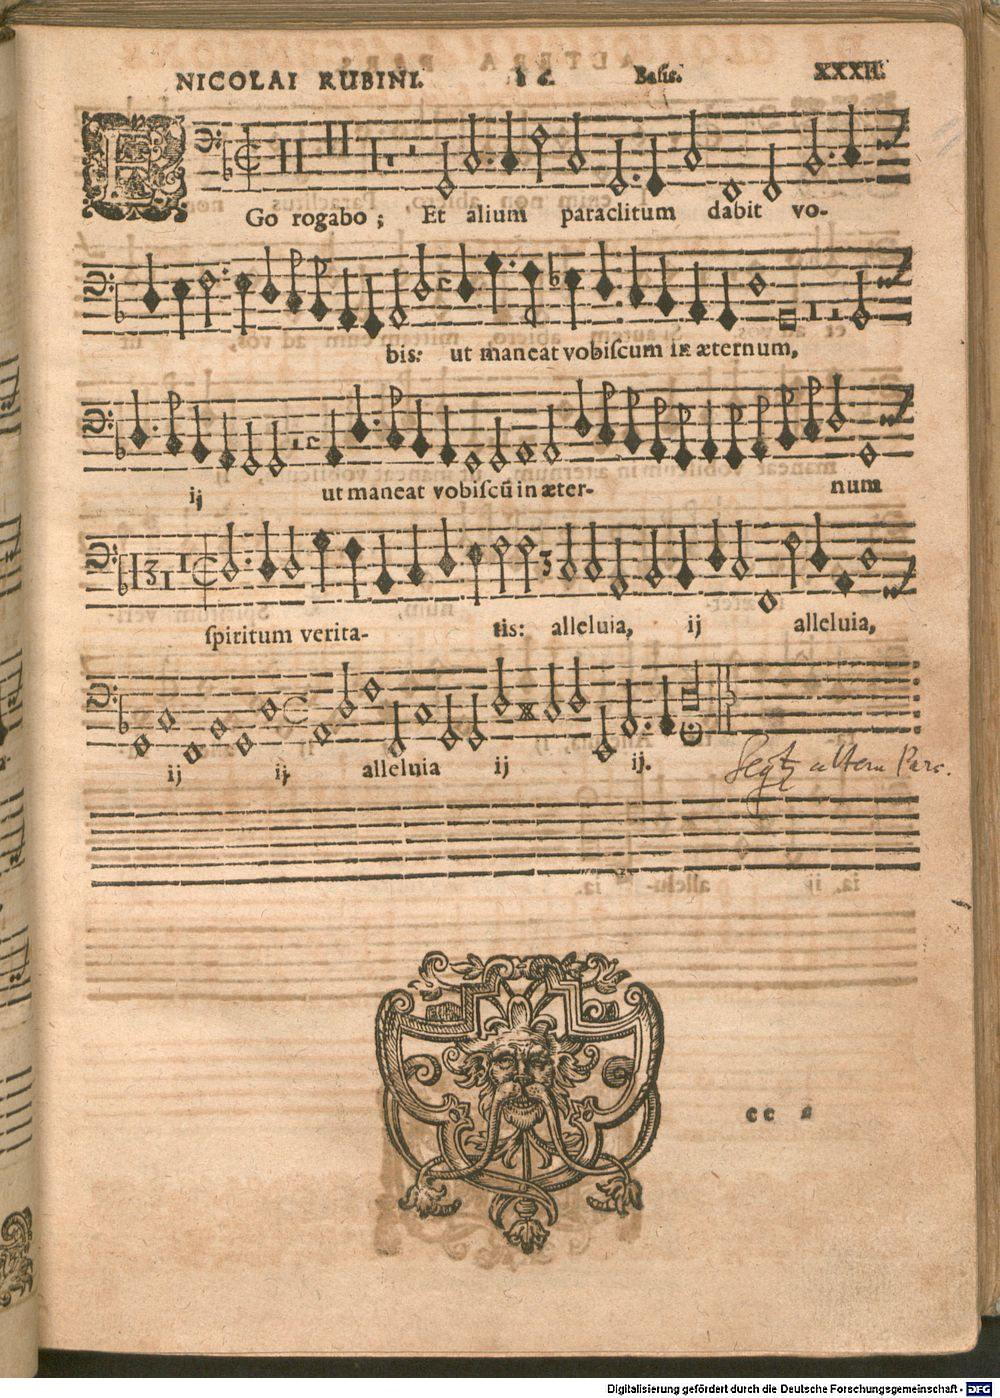 NICOLAI RUBINI. à 6. Basis. XXXII.
E
Go rogabo ; Et alium paraclitum dabit vo-
bis: ut maneat vobiſcum in æternum,
ij ut maneat vobiſcū in æter- num
ſpiritum verita- tis: alleluia, ij alleluia,
ij ij. alleluia ij ij.
altera Pars.
cc
Digitalisierung gefördert durch die Deutsche Forschungsgemeinschaft - DFG